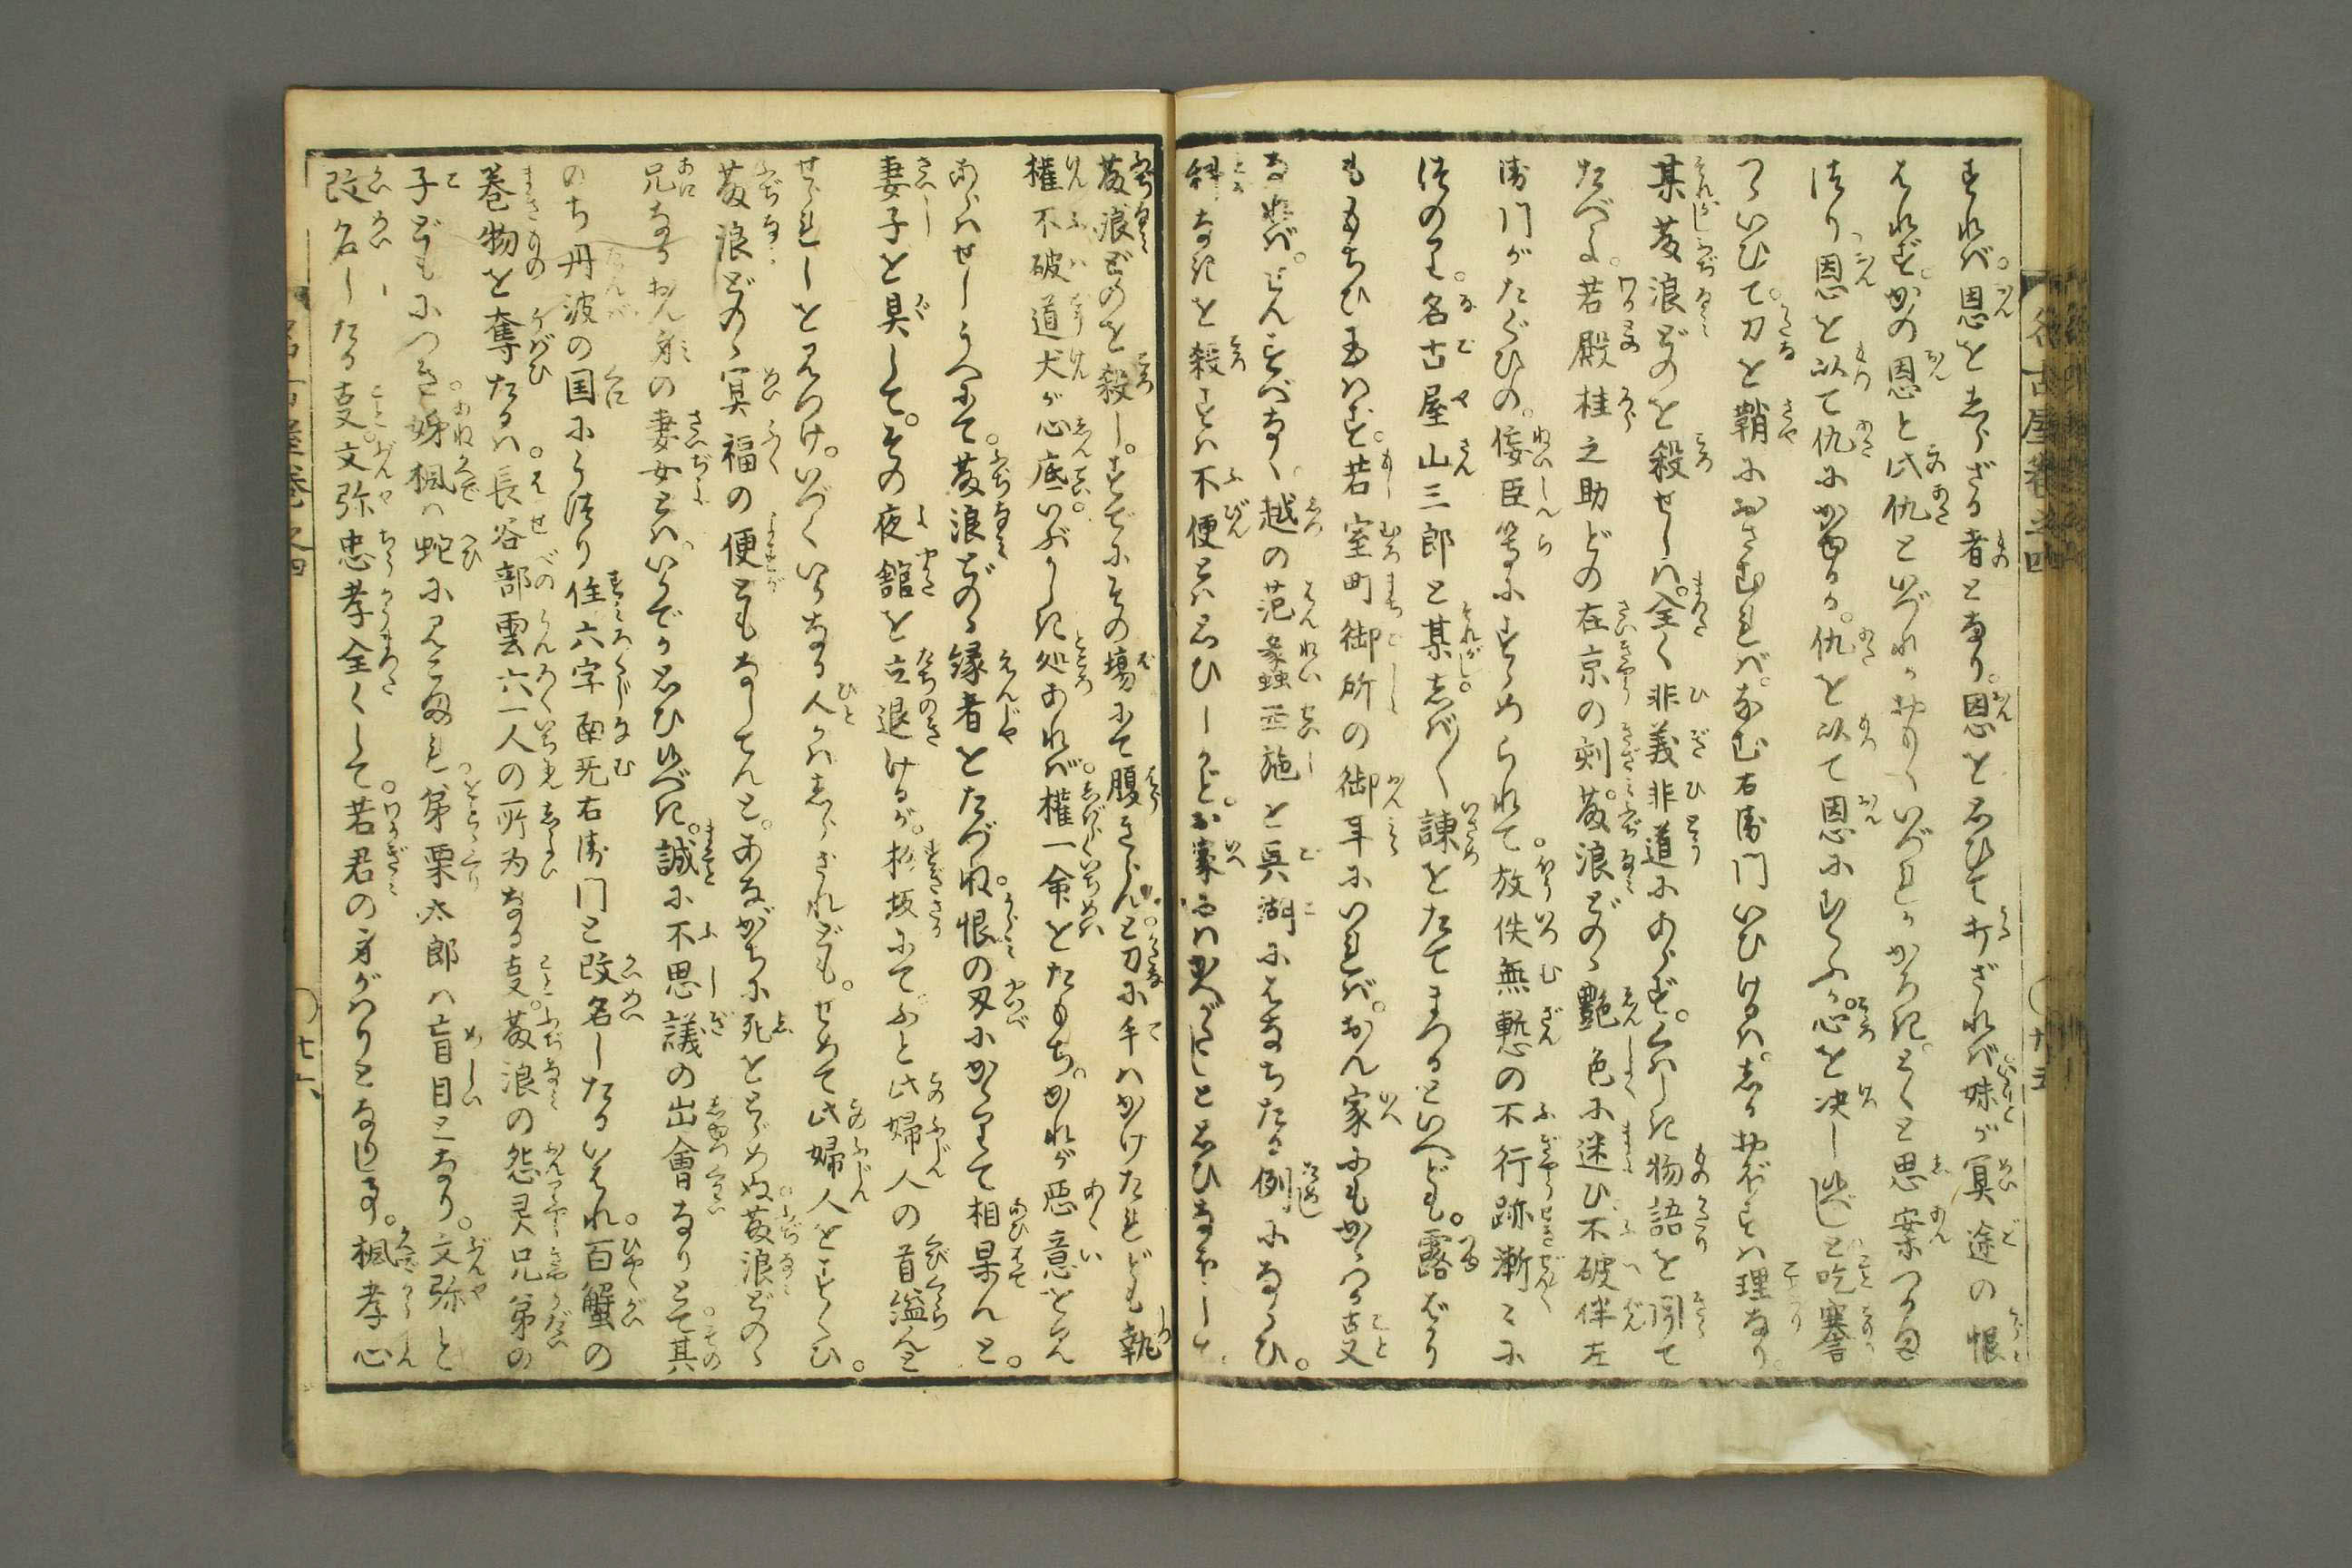 名古屋巻之四　十五
すれば。恩をしらざる者となり。恩を思ひて打ざれば妹が冥途の恨
はれず。かの恩と此仇といづれかおもくいづれかかろき。とくと思案つかま
つり恩を以て仇にかゆるか。仇を以て恩にむくふか心を決し候べしと吃謇
ついひて。刀を鞘におさむれば。なむ右衛門いひけるは。しかおぼすは理なり。
某藤浪どのを殺せしは。全く非義非道にあらず。くはしき物語を聞て
たべよ。若殿桂之助どの在京の刻。藤浪どのゝ艶色に迷ひ不破伴左
衛門がたぐひの。佞臣等にすゝめられて。放佚無慙の不行跡漸々に
つのり。名古屋山三郎と某。しば〳〵諌をたてまつるといへども。露ばかり
ももちひ玉はず。若室町御所の御耳にいれば。おん家にもかゝる事
なれば。せんすべなく。越の范蠡西施を呉湖にはなちたる例にならひ。
科なきを殺すは不便とは思ひしかど。お家にはかへがたしと思ひなほして
藤浪どのを殺し。すでにその場にて腹きらんと。刀に手はかけたれども執
権不破道犬が心底いぶかしき処あれば。権一命をたもち。かれが悪意をらん
あらはせしうへにて。藤浪どのゝ縁者をたづね。恨の刄にかゝりて相果んと。
妻子を具して。その夜館を立退けるが。杉坂にてふと此婦人の首縊んと
せられしを見つけ。いづくいかなる人かはしらざれども。せめて此婦人をすくひ。
藤浪どのゝ冥福の便ともなしてんと。あながちに死をとゞめぬ。藤浪どのゝ
兄なるおん身の妻女とは。いかでか思ひ候べき。誠に不思議の出會なりとて。其
のち丹波の国にうつり住六字南无右衛門と改名したるいはれ。百蟹の
巻物を奪たるは。長谷部雲六一人の所為なる事。藤浪の怨灵兄弟の
子どもにつき。姊楓は蛇に見こまれ。弟栗太郎は盲目となり。文弥と
改名したる事。文弥忠孝全くして。若君の身がはりとなりし事。楓孝心
名古屋巻之四　十六